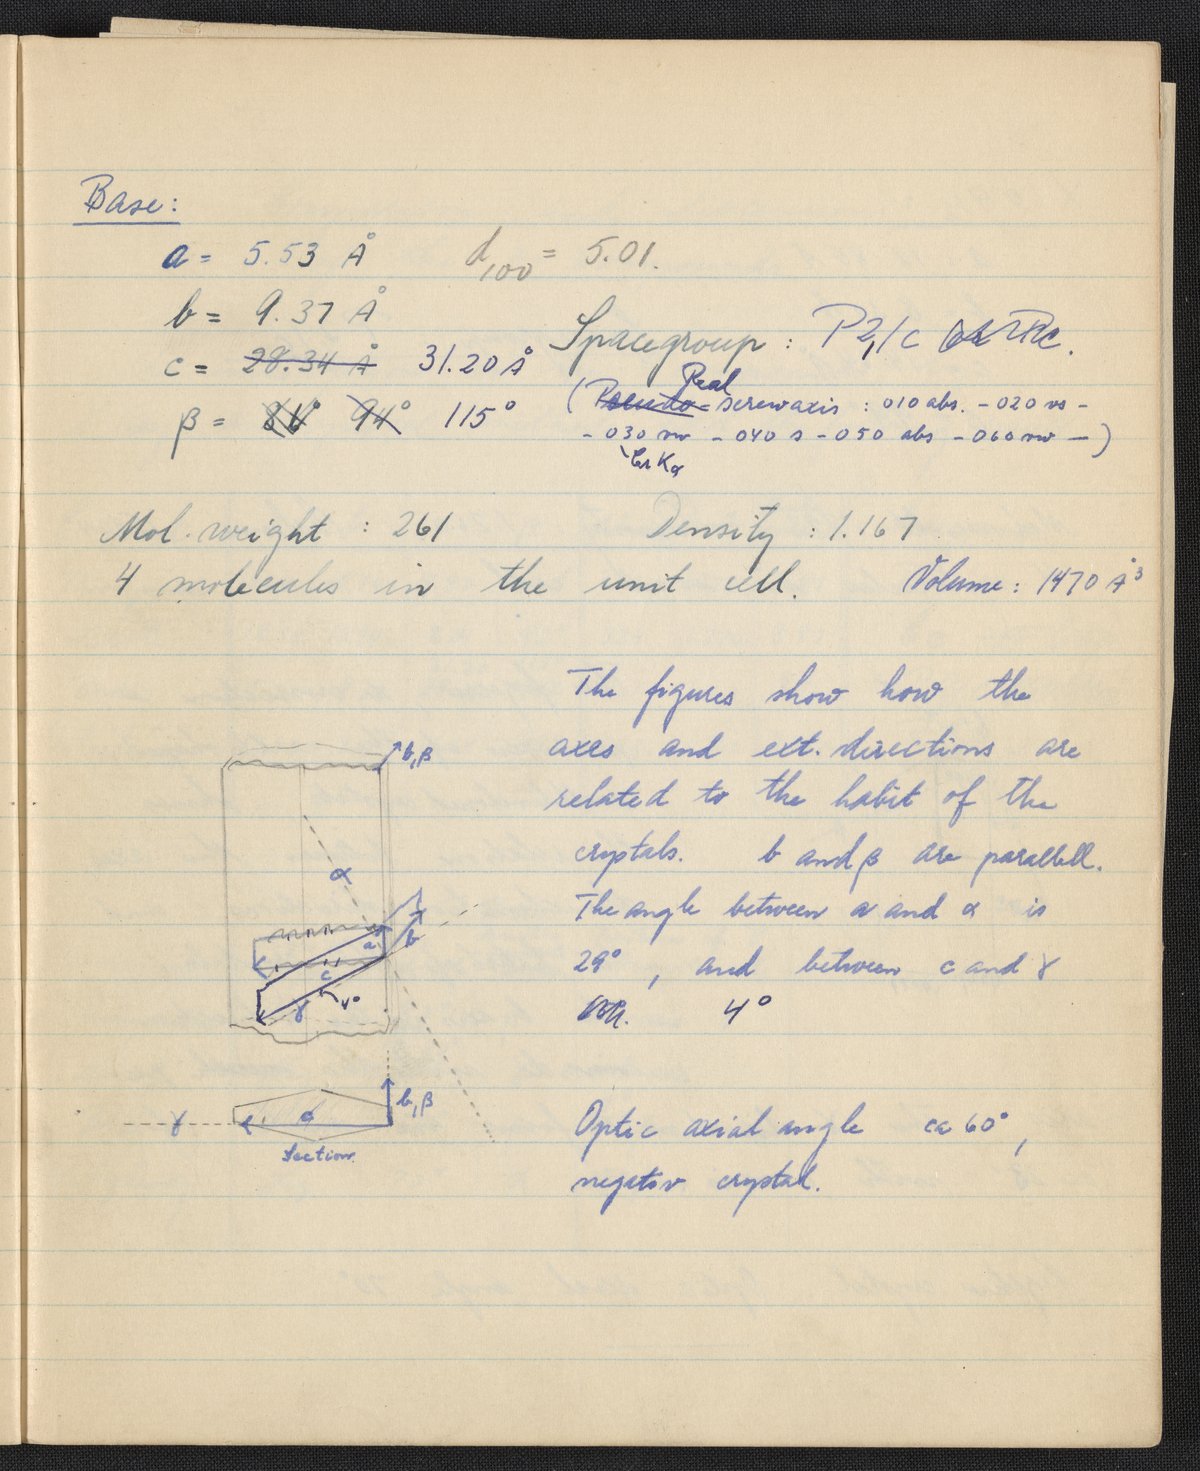 Base:
a = 5.53 Å d₁₀₀ = 5.01.
b = 9.37 Å
Spacegroup : P2₁/c or Pc.
c = 28.34 Å 31.20 Å
Real
(Pseudo-screwaxis : 010 abs. - 020 vs -
β = 86° 94° 115°
- 030 vw - 040 s - 050 abs - 060 vw - )
CrKα
Mol. weight : 261 Density : 1.167
4 molecules in the unit cell. Volume : 1470 Å³
The figures show how the
axes and ext. directions are
related to the habit of the
crystals. b and β are parallell.
The angle between a and α is
29° , and between c and γ
4°
b,β
α
a
b
c
4°
γ
b,β
γ
Section
Optic axial angle ca 60° ,
negativ crystal.